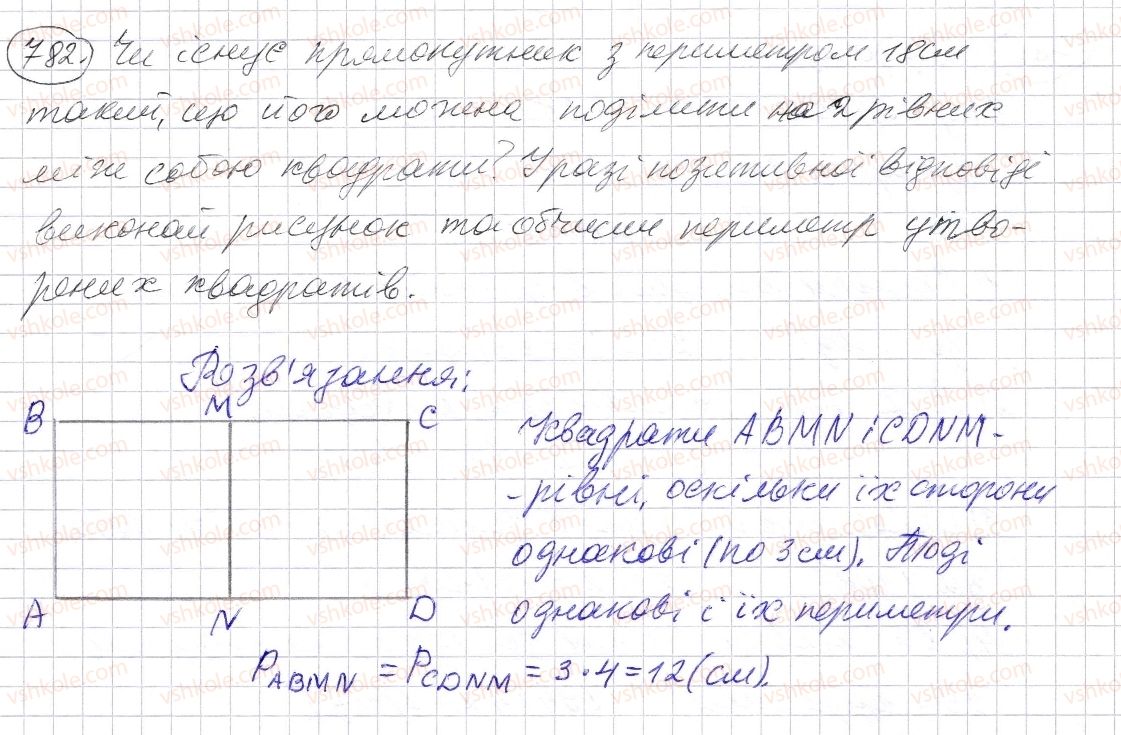 782. Чи існує прямокутник з периметром 18 см
такий, що його можна поділити на 2 рівних
між собою квадрати? У разі позитивної відповіді
виконай рисунок та обчисли периметр утво-
рених квадратів.
Розв'язання:
B M C
Квадрати ABMN і CDNM -
- рівні, оскільки їх сторони
однакові (по 3 см). Тоді
однакові і їх периметри.
A N D
P ABMN = P CDNM = 3 · 4 = 12 (см).
vshkole.com